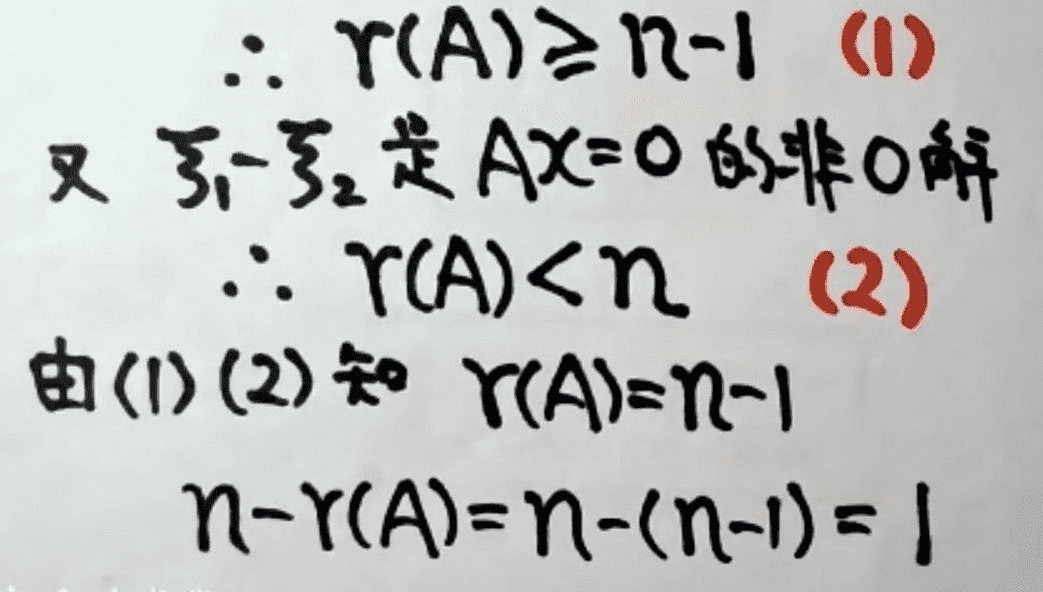 ∴ r(A)≥n-1 (1)
又 ξ₁-ξ₂是 AX=0 的非0解
∴ r(A)<n (2)
由(1)(2)知 r(A)=n-1
n-r(A)=n-(n-1)=1